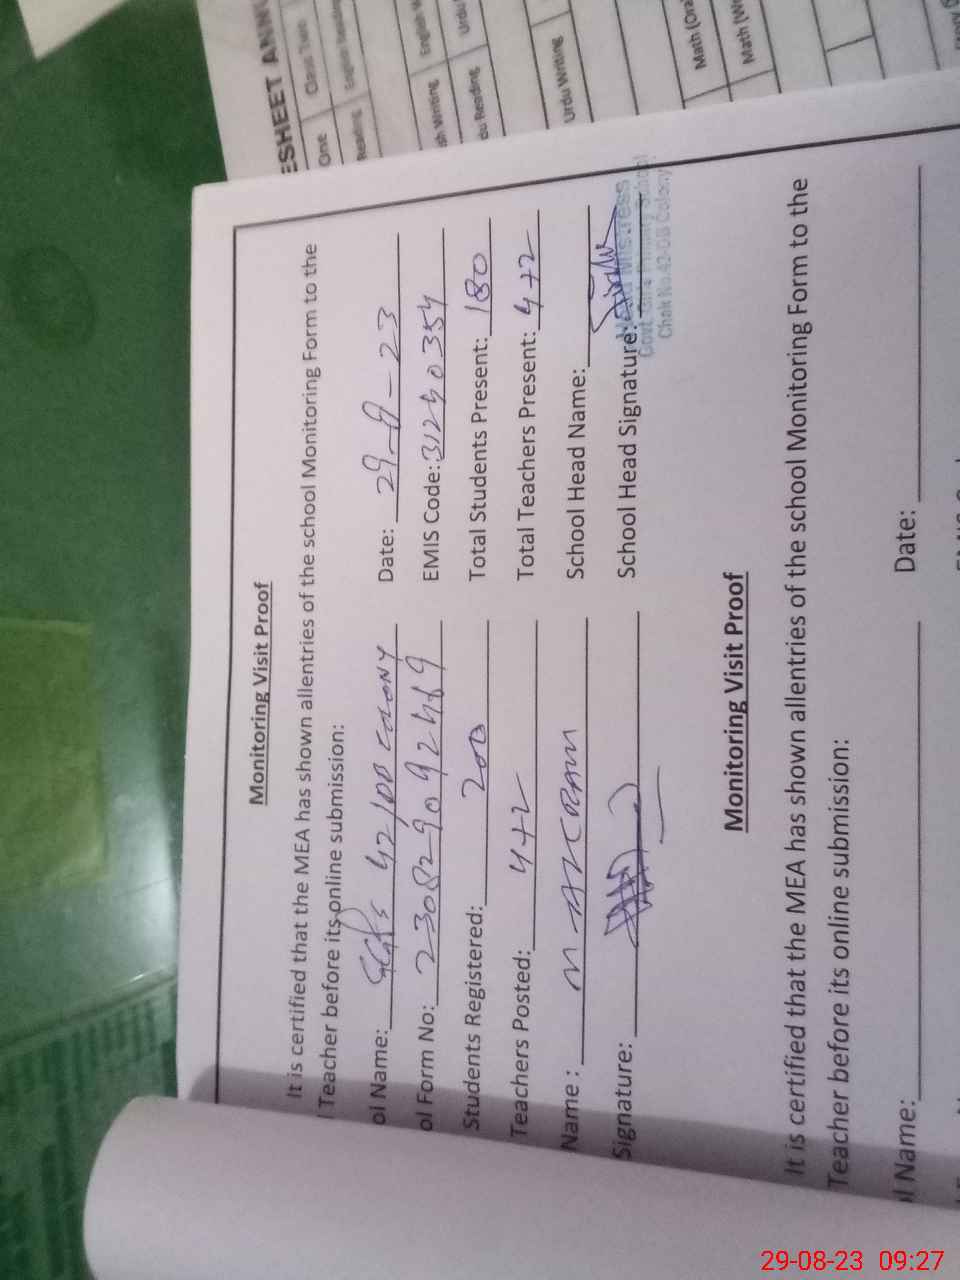 ESHEET ANNU
One
Class Two
Reading
English Reading
sh Writing
English W
du Reading
Urdu
Urdu Writing
Math (Oral
Math (Wr
Monitoring Visit Proof
It is certified that the MEA has shown allentries of the school Monitoring Form to the
Teacher before its online submission:
ol Name: GGPS 42/DB COLONY Date: 29-8-23
ol Form No: EMIS Code: 31240354
Students Registered: 200 Total Students Present: 180
Teachers Posted: 4+2 Total Teachers Present: 4+2
Name : M AKRAM School Head Name:
Signature: School Head Signature:
Head Mistress
Govt Girls Primary School
Chak No.42-DB Colony
Monitoring Visit Proof
It is certified that the MEA has shown allentries of the school Monitoring Form to the
Teacher before its online submission:
l Name: Date:
29-08-23 09:27